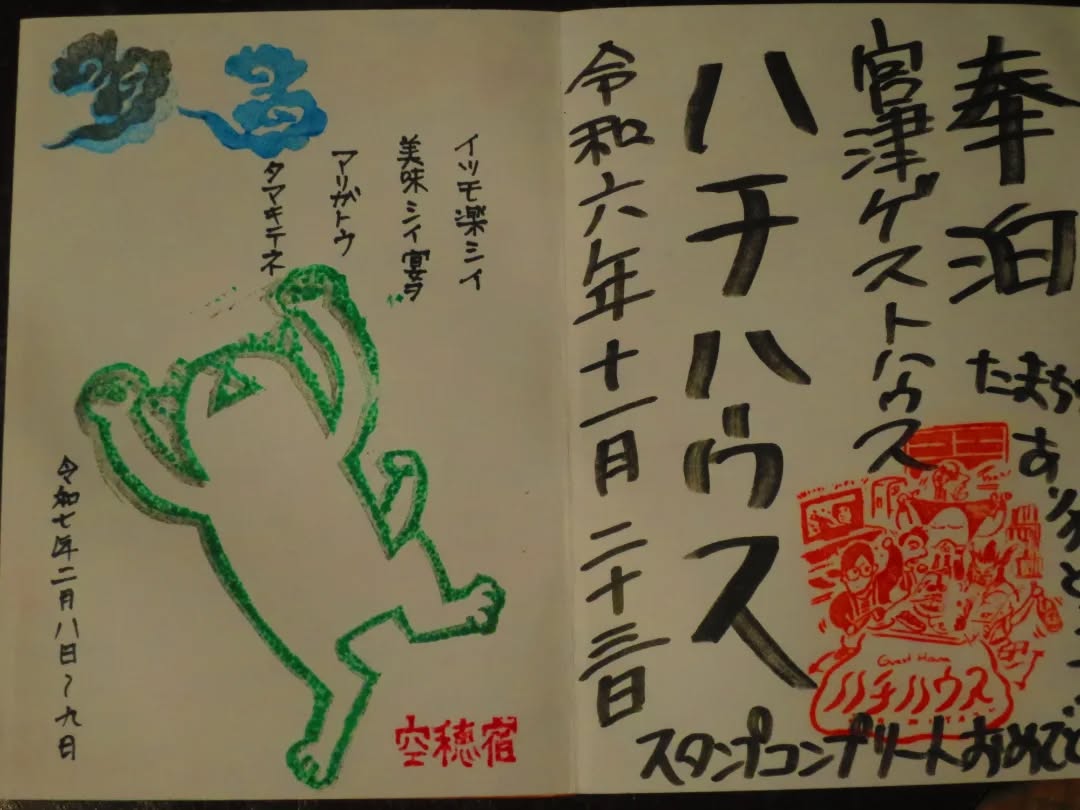 奉泊
宮津ゲストハウス
ハチハウス
令和六年十一月二十三日
たまち
Guest House
ハチハウス
スタンプコンプリートおめでと
イツモ楽シイ
美味シイ宴ヲ
アリガトウ
タマキテネ
令和七年二月八日〜九日
空穂宿